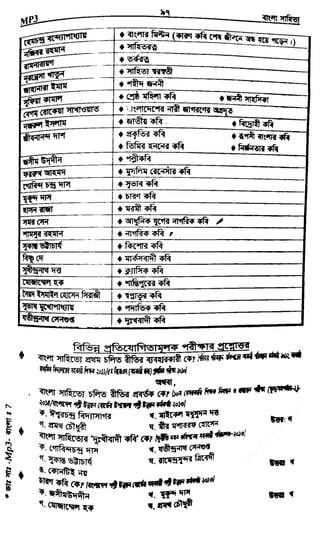 MP3 ৯৭ বাংলা সাহিত্য
হেমচন্দ্র বন্দ্যোপাধ্যায় ◆ বাংলার মিল্টন (কারণ কবি শেষ জীবনে অন্ধ হয়ে পড়েন।)
নজিবর রহমান ◆ সাহিত্যরত্ন
রামনারায়ণ ◆ তর্করত্ন
নূরন্নেসা খাতুন ◆ সাহিত্য সরস্বতী
জাহানারা ইমাম ◆ শহীদ জননী
সুফিয়া কামাল ◆ শ্রেষ্ঠ মহিলা কবি ◆ জননী সাহসিকা
বেগম রোকেয়া সাখাওয়াত নারী জাগরণের অগ্রদূত
নজরুল ইসলাম ◆ জাতীয় কবি ◆ বিদ্রোহী কবি
জীবনানন্দ দাশ ◆ প্রকৃতির কবি ◆ রূপসী বাংলার কবি
◆ তিমির হননের কবি ◆ নির্জনতার কবি
জসীম উদ্দীন ◆ পল্লীকবি
ফররুখ আহমেদ ◆ মুসলিম রেনেসাঁর কবি
গোবিন্দ চন্দ্র দাস ◆ স্বভাব কবি
মুকুন্দ দাস ◆ চারণ কবি
হাসন রাজা ◆ মরমী কবি
সমর সেন ◆ আধুনিক যুগের নাগরিক কবি
শামসুর রাহমান ◆ নাগরিক কবি
সুকান্ত ভট্টাচার্য ◆ কিশোর কবি
বিষ্ণু দে ◆ মার্কসবাদী কবি
সুধীন্দ্রনাথ দত্ত ◆ ক্লাসিক কবি
মোজাম্মেল হক ◆ শান্তিপুরের কবি
সৈয়দ ইসমাইল হোসেন সিরাজী ◆ স্বপ্নাতুর কবি
সুভাষ মুখোপাধ্যায় ◆ পদাতিক কবি
যতীন্দ্রনাথ সেনগুপ্ত ◆ দুঃখবাদী কবি
বিভিন্ন প্রতিযোগিতামূলক পরীক্ষার প্রশ্নোত্তর
◆ বাংলা সাহিত্যে প্রথম চলিত রীতির ব্যবহারকারী কে?
অথবা,
বাংলা সাহিত্যে চলিত রীতির প্রবর্তক কে?
ক. ঈশ্বরচন্দ্র বিদ্যাসাগর খ. মাইকেল মধুসূদন দত্ত
গ. প্রমথ চৌধুরী ঘ. মীর মশাররফ হোসেন উত্তর: গ
◆ বাংলা সাহিত্যের 'দুঃখবাদী কবি' কে?
ক. গোবিন্দচন্দ্র দাস খ. যতীন্দ্রনাথ সেনগুপ্ত
গ. সুকান্ত ভট্টাচার্য
ঙ. কোনটিই নয়
◆ চারণ কবি কে?
ক. জসীমউদ্দীন খ. মুকুন্দ দাস
গ. মোজাম্মেল হক ঘ. প্রমথ চৌধুরী